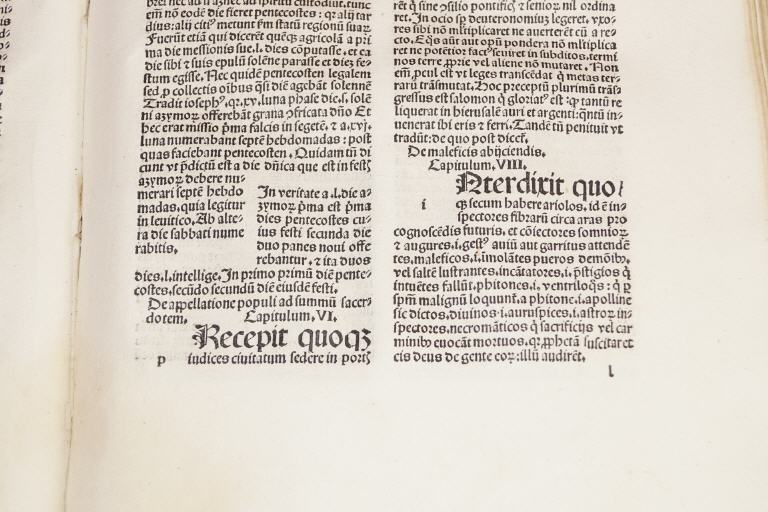 em̄ nō eodē die fieret pentecostes: qꝛ alij tar
dius: alij citiꝰ metunt ꝑm statū regionū suaꝝ
Fuerūt etiā qui dicerēt quēqꝫ agricolā a pri
ma die messionis sue.l. dies cōputasse, et ea
die sibi ⁊ suis epulū solēne parasse et dieꝫ fe-
stum egisse. Nec quidē pentecosten legalem
sed ꝓ collectis oībus q̄si diē agebāt solennē
Tradit iosephꝰ, qꝛ.xv. luna phase die.s. solē
ni azymoꝝ offerebāt grana ꝯfricata dn̄o Et
hec erat missio p̄ma falcis in segetē, ⁊ a.xvj.
luna numerabant septē hebdomadas: post
quas faciebant pentecosten. Quidam tn̄ di
cunt vt p̄dictū est a die dn̄ica que est in festꝭ
azymoꝝ debere nu-
merari septē hebdo
madas, quia legitur
in leuitico. Ab alte-
ra die sabbati nume
rabitis.
In veritate a.l. die a-
zymoꝝ p̄ma est p̄ma
dies pentecostes cu-
ius festi secunda die
duo panes noui offe
rebantur, ⁊ ita duos
dies.l. intellige. In primo primū diē pente-
costes, secūdo secundū diē eiusdē festi.
De appellatione populi ad summū sacer-
dotem. Capitulum. VI.
Recepit quoqꝫ
p iudices ciuitatum sedere in portꝭ
ret q̄ sine ꝯsilio pontificꝭ ⁊ senioꝝ nil ordina
ret. In ocio sp̄ deuteronomiū legeret, vxo-
res sibi nō mltiplicaret ne auerterēt cū a re-
cto. Eqꝰs aūt aut opū pondera nō mltiplica
ret ne potētior factꝰ seuiret in subditos, termi
nos terre ꝓprie vel aliene nō mutaret. Non
em̄ ꝓcul est vt leges transcēdat q̄ metas ter-
rarū trāsmutat. Hoc preceptū plurimū trās-
gressus est salomon q̄ gloriatꝰ est: ꝙ tantū re
liquerat in hierusalē auri et argenti: q̄ntū in-
uenerat ibi eris ⁊ ferri. Tandē tn̄ penituit vt
tradūt: de quo post dicet̄.
De maleficis abijciendis.
Capitulum. VIII.
Nterdixit quo/
i qꝫ secum habere ariolos. id ē in-
spectores fibrarū circa aras pro
cognoscēdis futuris, et cōiectores somnioꝝ
⁊ augures.i. gestꝰ auiū aut garritus attendē
tes, maleficos.i. imolātes pueros demōibꝰ,
vel saltē lustrantes, incātatores.i. p̄stigios q̄
intuētes fallūt, phitones.i. ventriloq̄s: q̄ ꝑ
spm̄ malignū loquunt̄, a phitone.i. apolline
sic dictos, diuinos.i. auruspices.i. astroꝝ in-
spectores, necromāticos q̄ sacrificijs vel car
minibꝰ euocāt mortuos, qꝛ ꝓphetā suscitaret
eis deus de gente eoꝝ: illū audirēt.
l